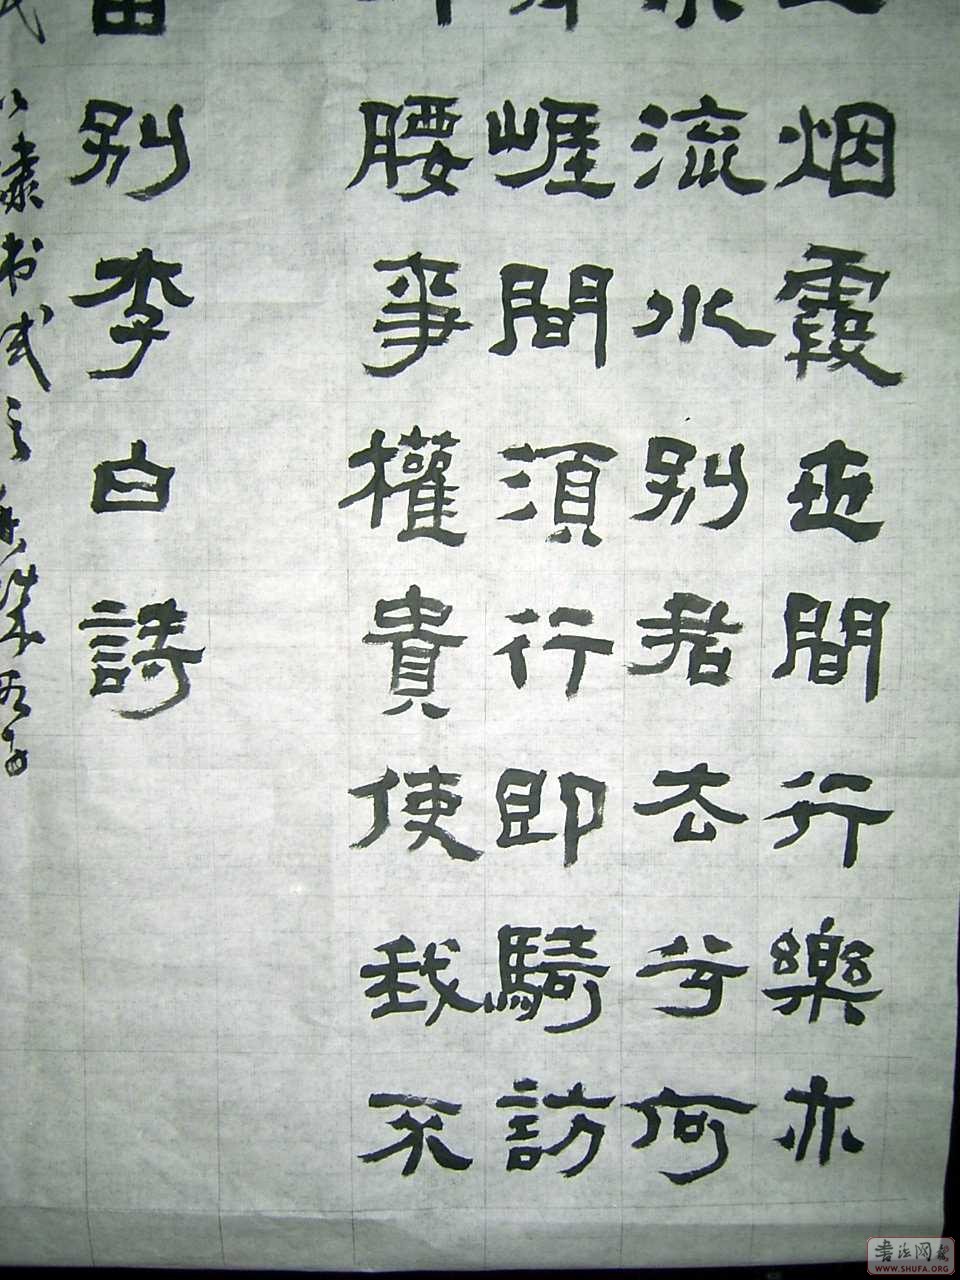 烟霞世間行樂亦
流水别君去兮何
崖間須行即騎訪
腰事權貴使我不
别李白詩
隸书
书法网
WWW.SHUFA.ORG